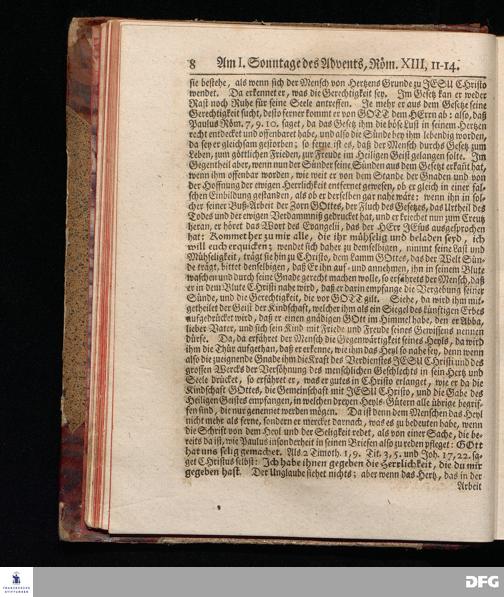 8 Am I. Sonntage des Advents, Röm. XIII, 11-14.
sie bestehe, als wenn sich der Mensch von Hertzens Grunde zu JESU Christo
wendet. Da erkennet er, was die Gerechtigkeit sey. Im Gesetz kan er weder
Rast noch Ruhe für seine Seele antreffen. Je mehr er aus dem Gesetze seine
Gerechtigkeit sucht, desto ferner kommt er von GOTT dem HErrn ab: also, daß
Paulus Röm. 7, 9. 10. saget, da das Gesetz ihm die böse Lust in seinem Hertzen
recht entdecket und offenbaret habe, und also die Sünde bey ihm lebendig worden,
da sey er gleichsam gestorben; so ferne ist es, daß der Mensch durchs Gesetz zum
Leben, zum göttlichen Frieden, zur Freude im Heiligen Geist gelangen solte. Im
Gegentheil aber, wenn nun der Sünder seine Sünden aus dem Gesetze erkant hat,
wenn ihm offenbar worden, wie weit er von dem Stande der Gnaden und von
der Hoffnung der ewigen Herrlichkeit entfernet gewesen, ob er gleich in einer fal-
schen Einbildung gestanden, als ob er derselben gar nahe wäre: wenn ihn in sol-
cher seiner Buß-Arbeit der Zorn GOttes, der Fluch des Gesetzes, das Urtheil des
Todes und der ewigen Verdammniß gedrucket hat, und er kriechet nun zum Creutz
heran, er höret das Wort des Evangelii, das der HErr JEsus ausgesprochen
hat: Kommet her zu mir alle, die ihr mühselig und beladen seyd, ich
will euch erquicken; wendet sich daher zu demselbigen, nimmt seine Last und
Mühseligkeit, trägt sie hin zu Christo, dem Lamm GOttes, das der Welt Sün-
de trägt, bittet denselbigen, daß Er ihn auf- und annehmen, ihn in seinem Blute
waschen und durch seine Gnade gerecht machen wolle, so erfähret der Mensch, daß
er in dem Blute Christi nahe wird, daß er darin empfange die Vergebung seiner
Sünde, und die Gerechtigkeit, die vor GOTT gilt. Siehe, da wird ihm mit-
getheilet der Geist der Kindschaft, welcher ihm als ein Siegel des künftigen Erbes
aufgedrücket wird, daß er einen gnädigen GOtt im Himmel habe, den er Abba,
lieber Vater, und sich sein Kind mit Friede und Freude seines Gewissens nennen
dürfe. Da, da erfähret der Mensch die Gegenwärtigkeit seines Heyls, da wird
ihm die Thür aufgethan, daß er erkenne, wie ihm das Heyl so nahe sey, denn wenn
also die zueignende Gnade ihm die Kraft des Verdienstes JESU Christi und des
grossen Wercks der Versöhnung des menschlichen Geschlechts in sein Hertz und
Seele drücket, so erfähret er, was er gutes in Christo erlanget, wie er da die
Kindschaft GOttes, die Gemeinschaft mit JESU Christo, und die Gabe des
Heiligen Geistes empfangen, in welchen dreyen Heyls-Gütern alle übrige begrif-
fen sind, die nur genennet werden mögen. Da ist denn dem Menschen das Heyl
nicht mehr als ferne, sondern er mercket darnach, was es zu bedeuten habe, wenn
die Schrift von dem Heyl und der Seligkeit redet, als von einer Sache, die be-
reits da ist, wie Paulus insonderheit in seinen Briefen also zu reden pfleget: GOtt
hat uns selig gemachet. Als 2 Timoth. 1, 9. Tit. 3, 5. und Joh. 17, 22. sa-
get Christus selbst: Ich habe ihnen gegeben die Herrlichkeit, die du mir
gegeben hast. Der Unglaube siehet nichts: aber wenn das Hertz, das in der
Arbeit
FRANCKESCHE
STIFTUNGEN
DFG